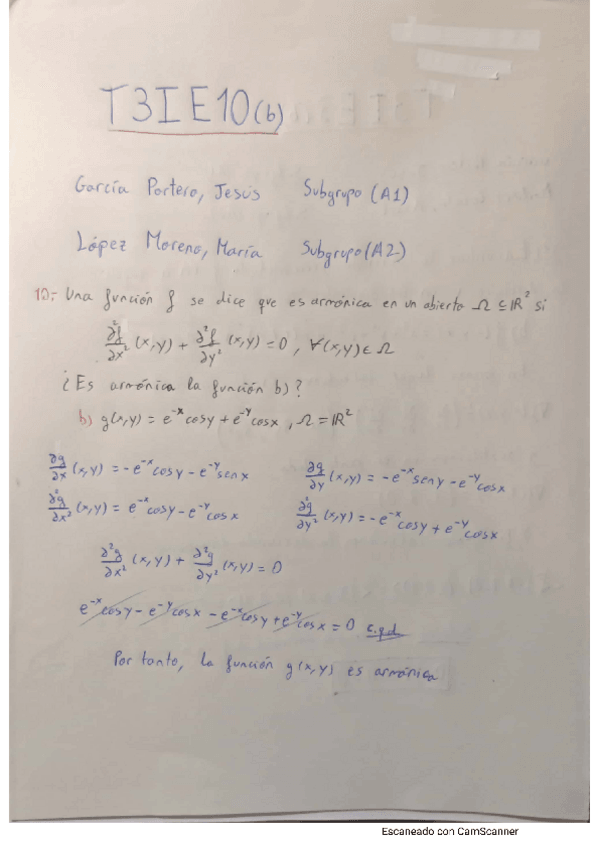 T3IE10(b)
García Portero, Jesús Subgrupo (A1)
López Moreno, María Subgrupo (A2)
10.- Una función f se dice que es armónica en un abierto Ω ⊆ ℝ² si
∂²f/∂x² (x,y) + ∂²f/∂y² (x,y) = 0 , ∀(x,y) ∈ Ω
¿Es armónica la función b)?
b) g(x,y) = e^-x cosy + e^-y cosx , Ω = ℝ²
∂g/∂x (x,y) = -e^-x cosy - e^-y senx ∂g/∂y (x,y) = -e^-x seny - e^-y cosx
∂²g/∂x² (x,y) = e^-x cosy - e^-y cosx ∂²g/∂y² (x,y) = -e^-x cosy + e^-y cosx
∂²g/∂x² (x,y) + ∂²g/∂y² (x,y) = 0
e^-x cosy - e^-y cosx - e^-x cosy + e^-y cosx = 0 c.q.d
Por tanto, la función g(x,y) es armónica
Escaneado con CamScanner